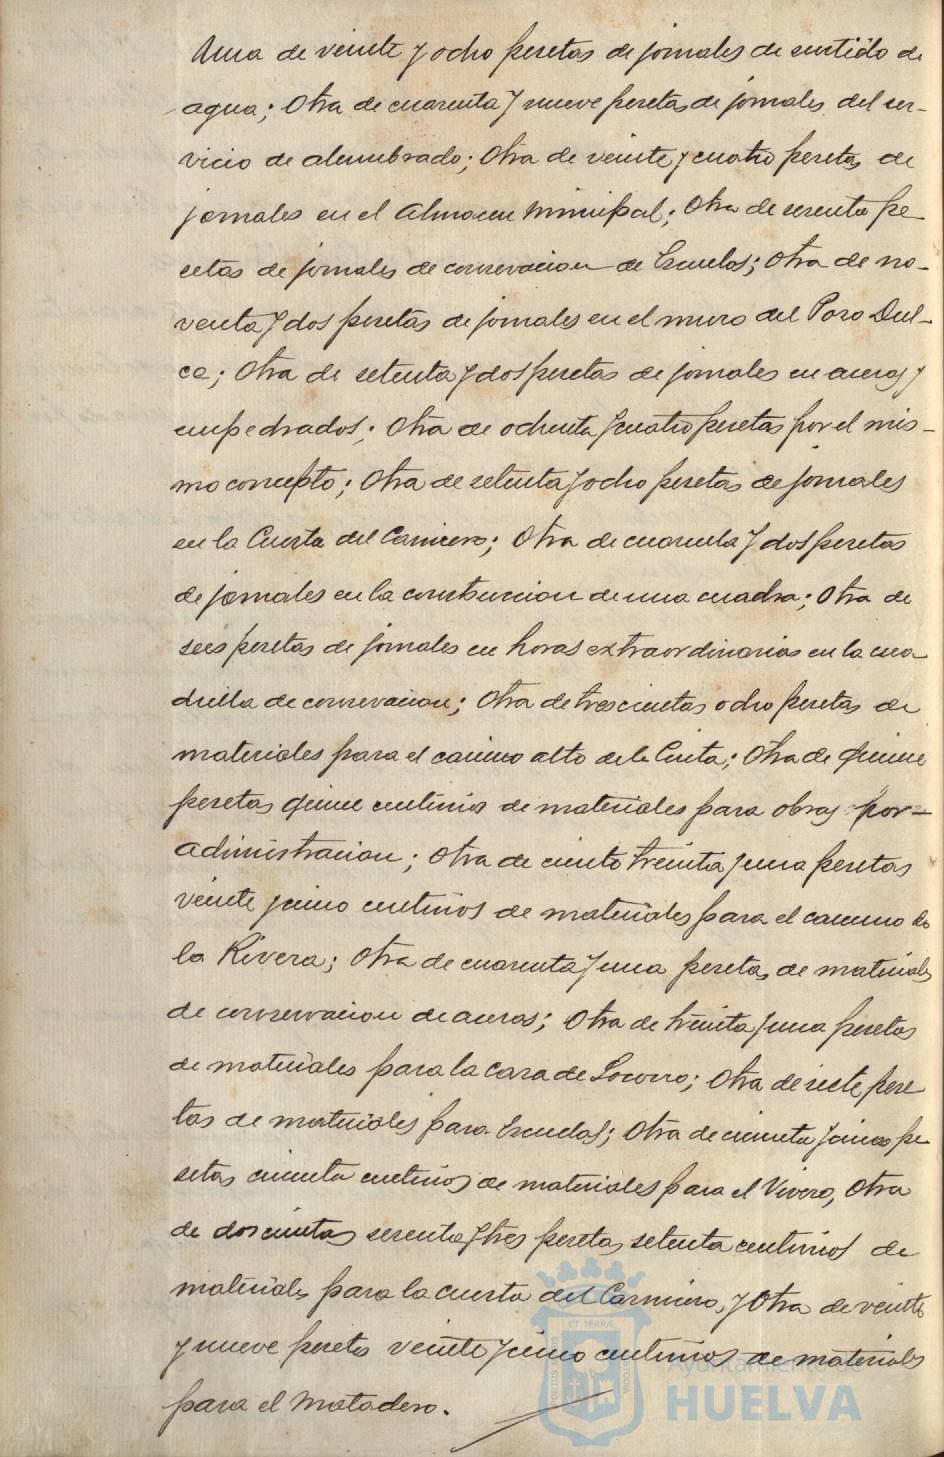 Una de veinte y ocho pesetas de jornales de surtido de
agua; Otra de cuarenta y nueve pesetas de jornales del ser-
vicio de alumbrado; Otra de veinte y cuatro pesetas de
jornales en el Almacen Municipal; Otra de sesenta pe
setas de jornales de conservacion de Escuelas; Otra de no-
venta y dos pesetas de jornales en el muro del Pozo Dul-
ce; Otra de setenta y dos pesetas de jornales en aceras y
empedrados; Otra de ochenta y cuatro pesetas por el mis-
mo concepto; Otra de setenta y ocho pesetas de jornales
en la Cuesta del Carnicero; Otra de cuarenta y dos pesetas
de jornales en la construccion de una cuadra; Otra de
seis pesetas de jornales en horas extraordinarias en la cua
drilla de conservacion; Otra de trescientas ocho pesetas de
materiales para el camino alto de la Cinta; Otra de quince
pesetas quince centimos de materiales para obras por-
administracion; Otra de ciento treinta y una pesetas
veinte y cinco centimos de materiales para el camino de
la Rivera; Otra de cuarenta y una pesetas de materiales
de conservacion de aceras; Otra de treinta y una pesetas
de materiales para la Casa de Socorro; Otra de siete pese
tas de materiales para Escuelas; Otra de cincuenta y cinco pe
setas cincuenta centimos de materiales para el Vivero, Otra
de doscientas sesenta y tres pesetas setenta centimos de
materiales para la cuesta del Carnicero, y Otra de veinte
y nueve pesetas veinte y cinco centimos de materiales
para el Matadero.
ET TERRÆ
Ayuntamiento de
HUELVA